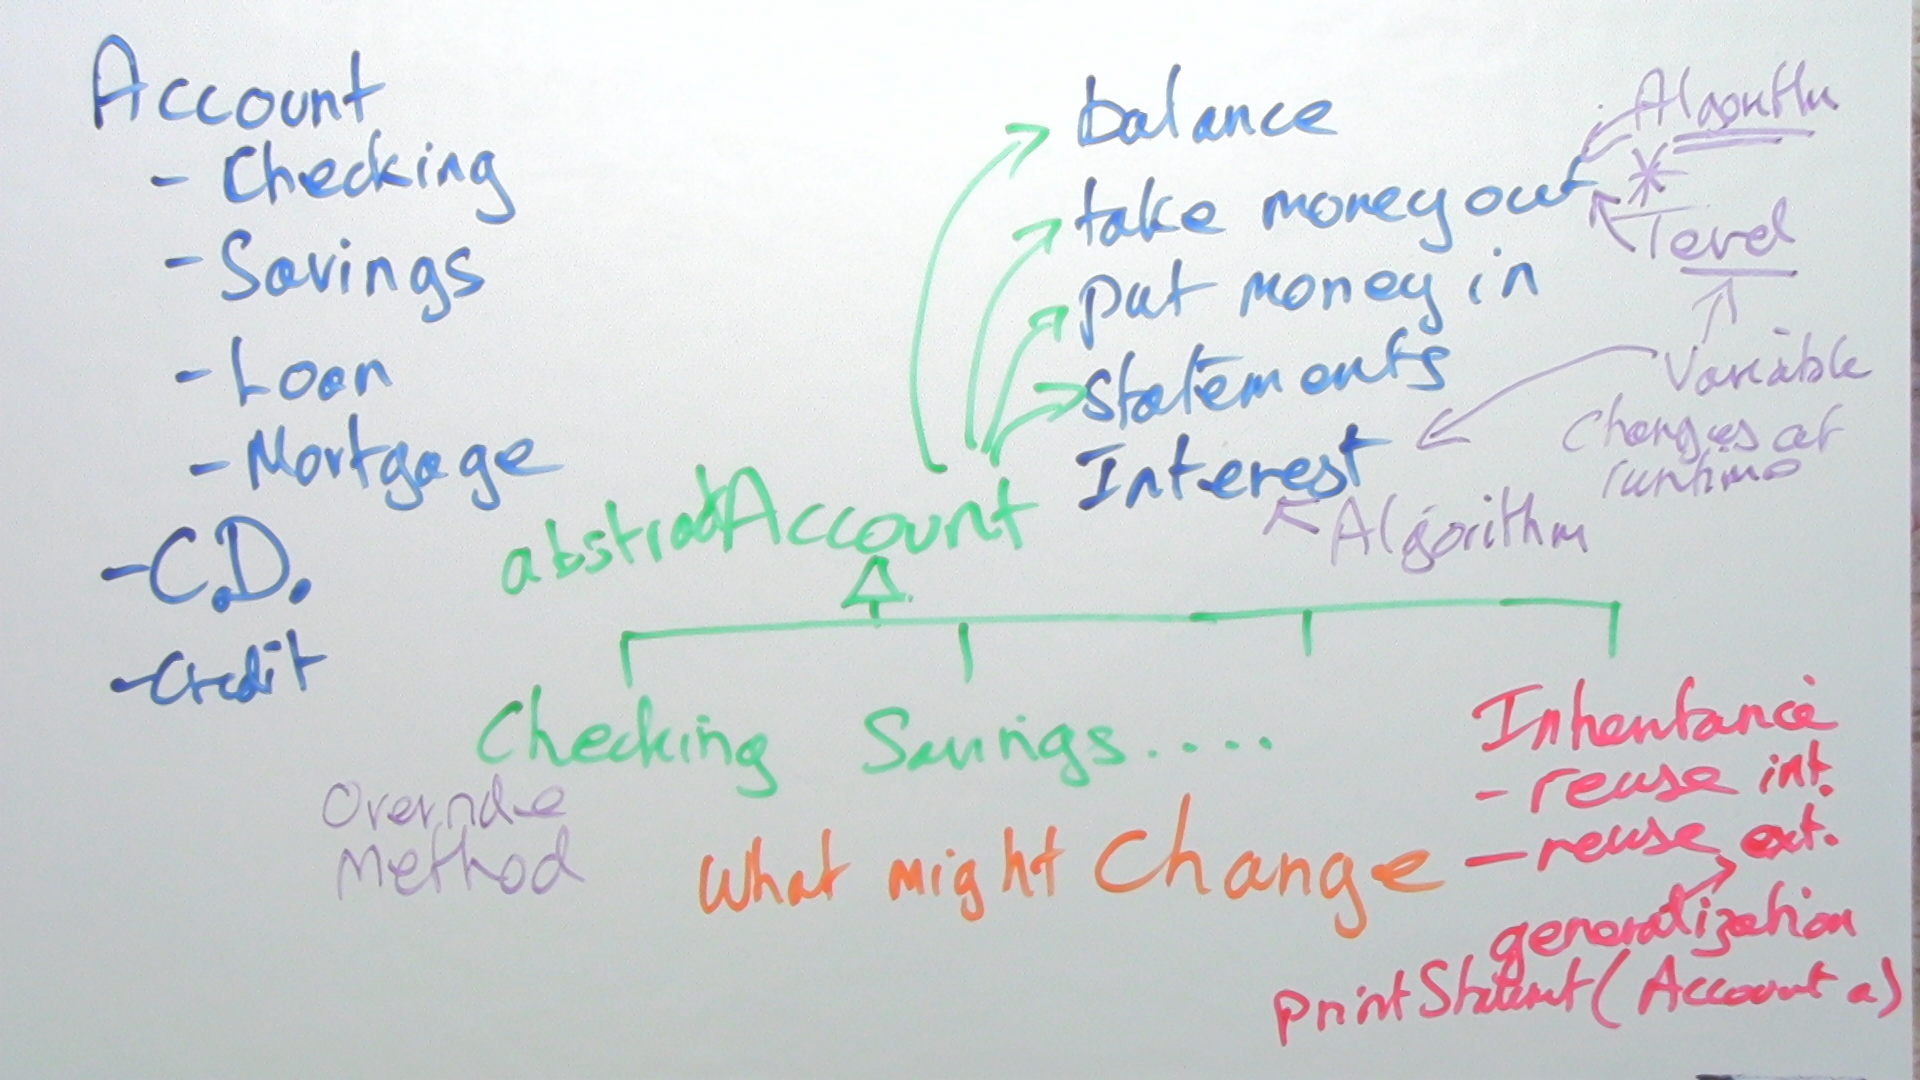 Account
- Checking
- Savings
- Loan
- Mortgage
- C.D.
- Credit
balance
take money out
put money in
statements
Interest
Algorithm
*
Level
Variable
Changes at
runtime
Algorithm
abstract Account
Checking Savings.....
Override
Method
What might Change
Inheritance
- reuse int.
- reuse ext.
generalization
printStatement(Account a)